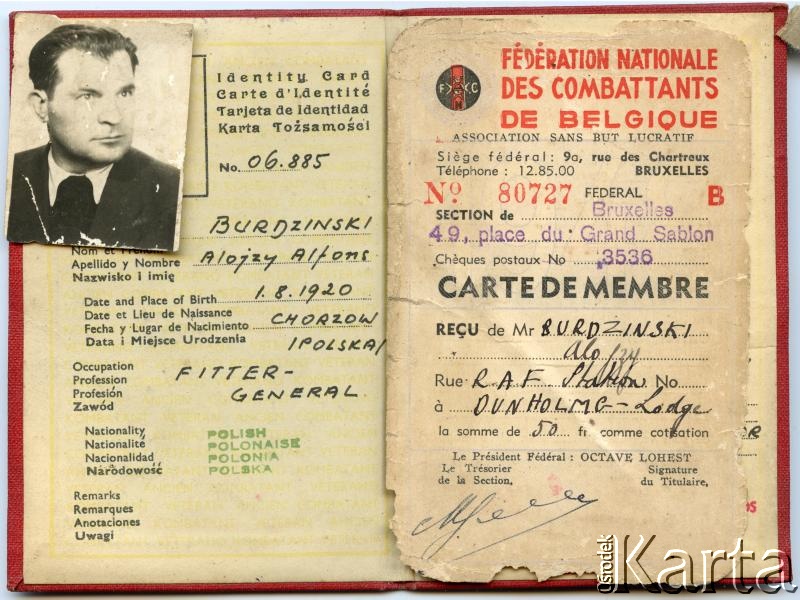 Identity Card
Carte d'Identité
Tarjeta de Identidad
Karta Tożsamości
No. 06.885
BURDZINSKI
Nom et
Apellido y Nombre Alojzy Alfons
Nazwisko i imię
Date and Place of Birth 1.8.1920
Date et Lieu de Naissance
Fecha y Lugar de Nacimiento CHORZOW
Data i Miejsce Urodzenia /POLSKA/
Occupation
Profession FITTER-
Profesión GENERAL
Zawód
Nationality POLISH
Nationalité POLONAISE
Nacionalidad POLONIA
Narodowość POLSKA
Remarks
Remarques
Anotaciones
Uwagi
FÉDÉRATION NATIONALE
DES COMBATTANTS
DE BELGIQUE
ASSOCIATION SANS BUT LUCRATIF
Siège fédéral: 9a, rue des Chartreux
Téléphone : 12.85.00 BRUXELLES
No 80727 FEDERAL B
SECTION de Bruxelles
49, place du Grand Sablon
Chèques postaux No 3536
CARTE DE MEMBRE
REÇU de Mr BURDZINSKI
Alojzy
Rue RAF Station No
à DUNHOLME-Lodge
la somme de 50 fr. comme cotisation
Le Président Fédéral : OCTAVE LOHEST
Le Trésorier Signature
de la Section, du Titulaire,
Ośrodek Karta